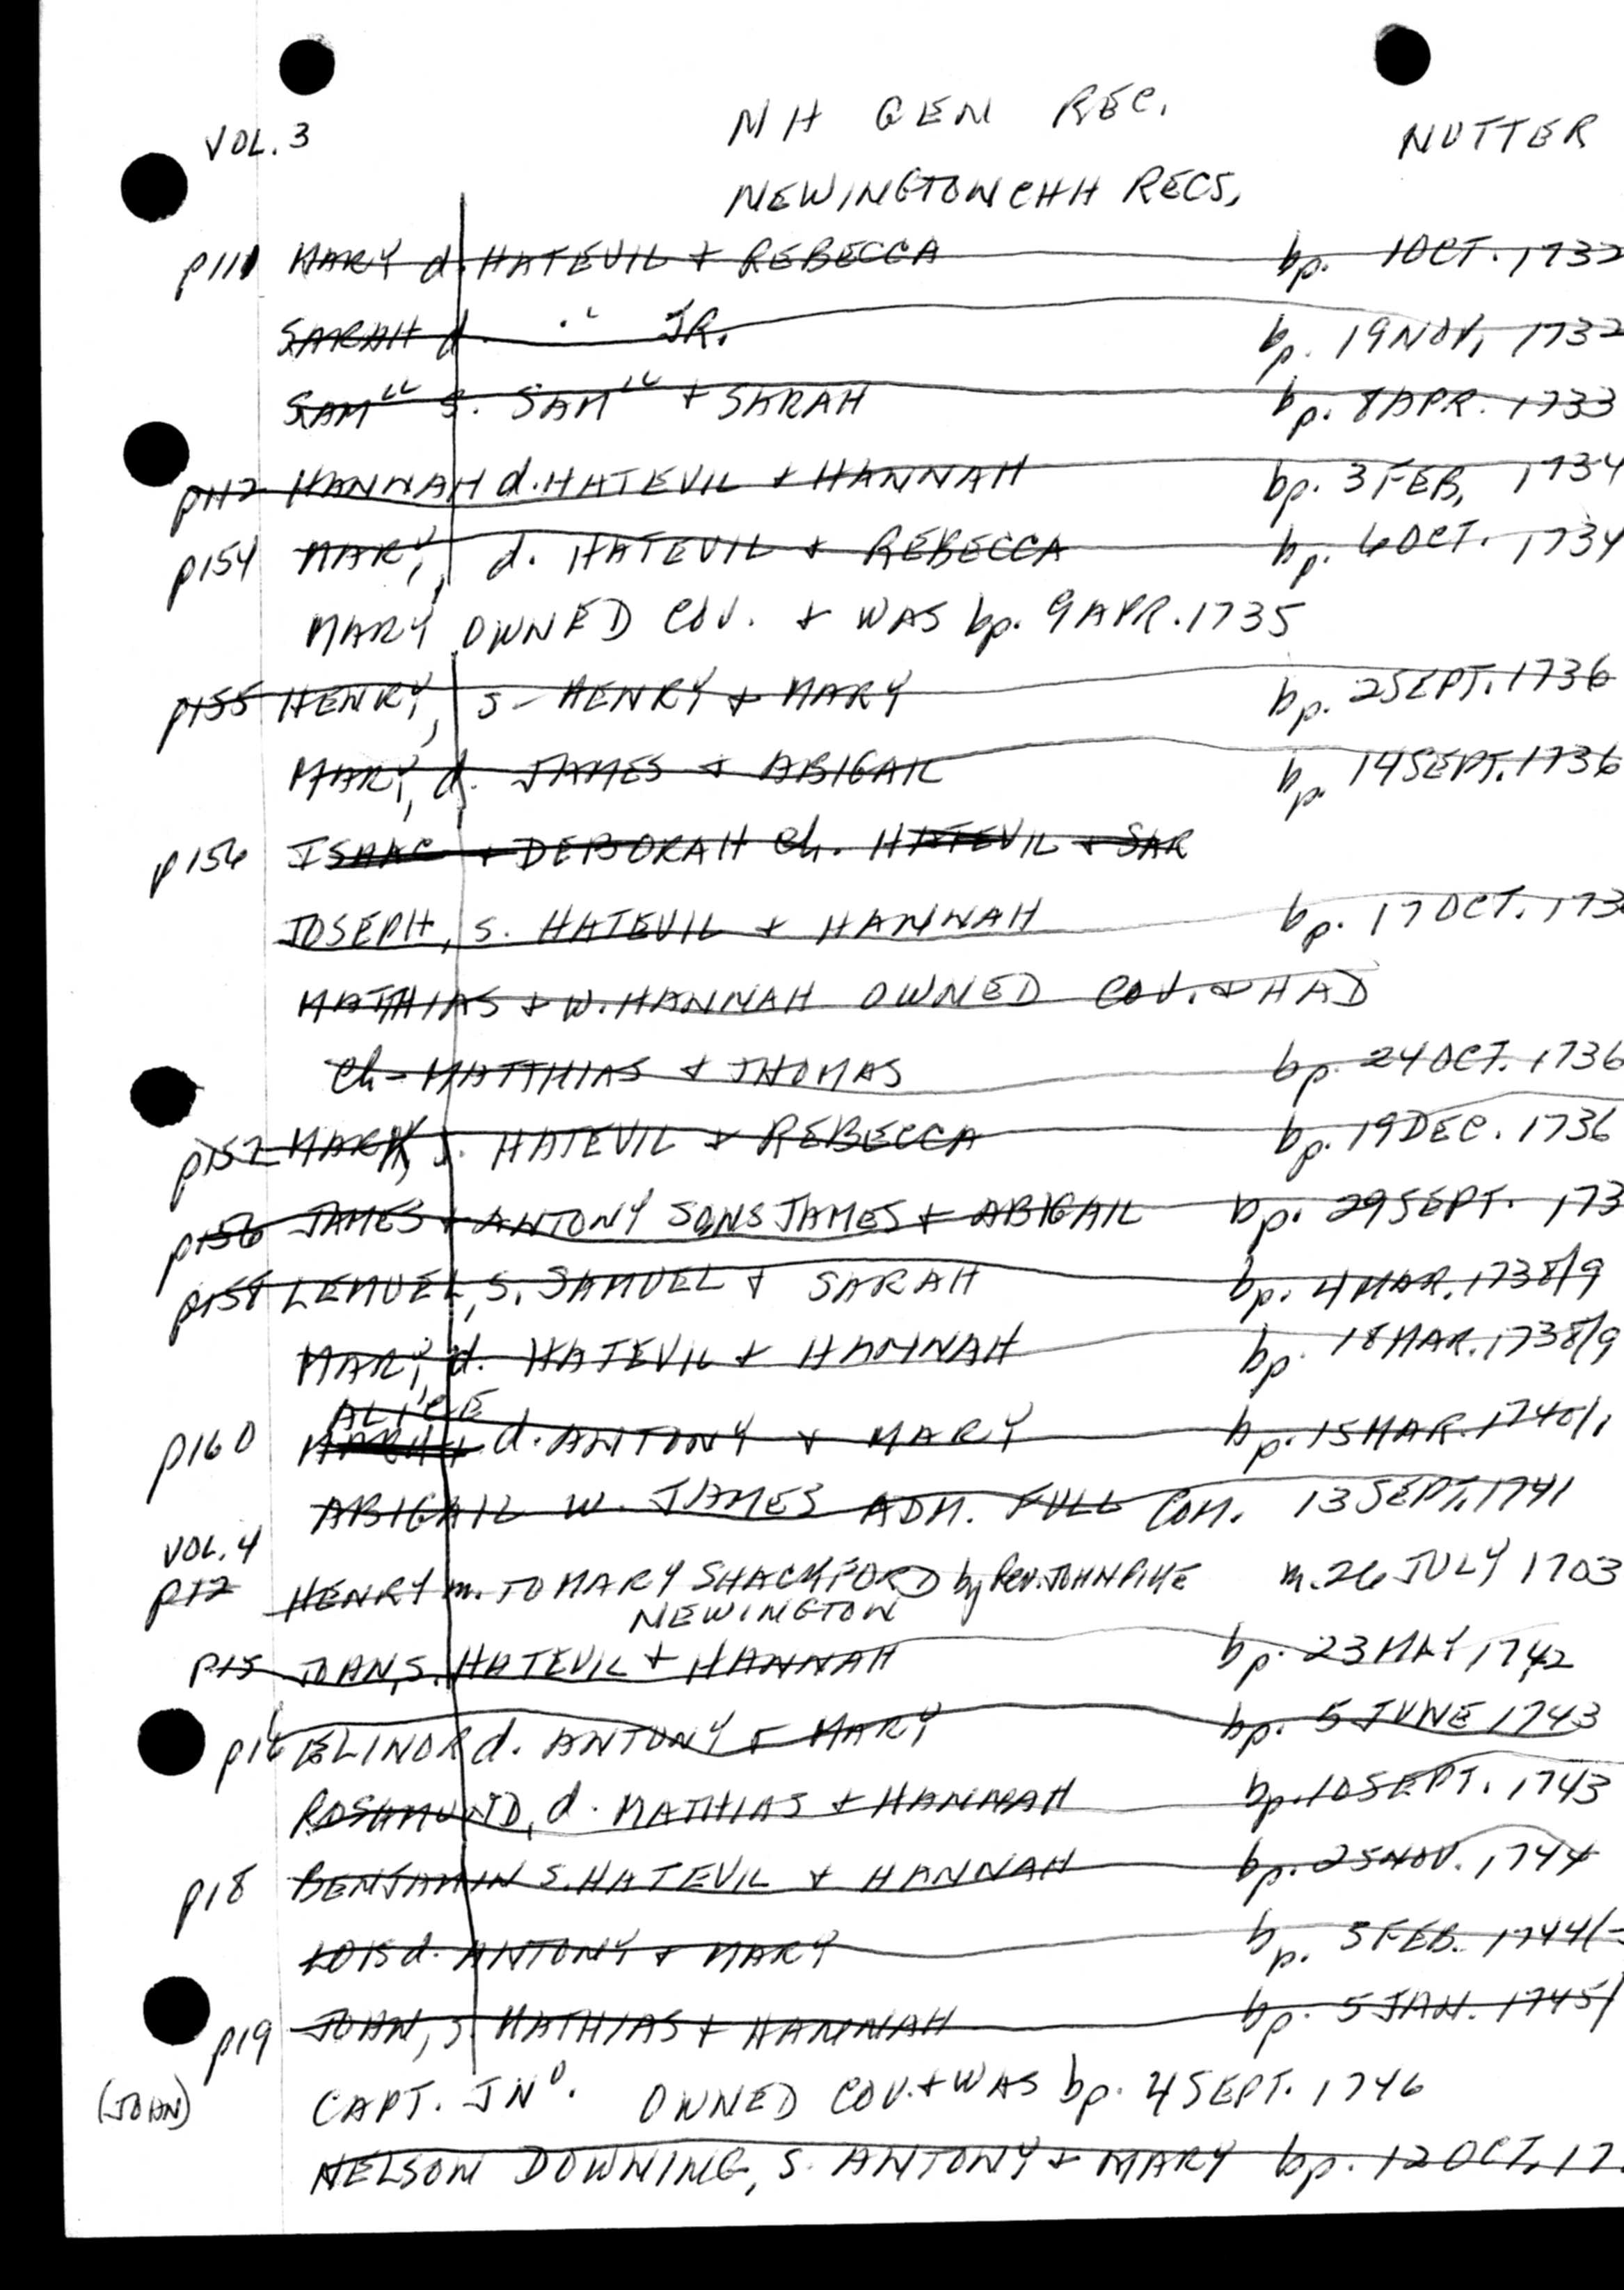 VOL. 3 NH GEN REC. NUTTER
NEWINGTON CHH RECS,
p111 MARY d. HATEVIL + REBECCA bp. 1 OCT. 1732
SARAH d. " JR. bp. 19 NOV, 1732
SAMLL S. SAMLL + SARAH bp. 8 APR. 1733
p112 HANNAH d. HATEVIL + HANNAH bp. 3 FEB, 1734
p154 MARY, d. HATEVIL + REBECCA bp. 6 OCT. 1734
MARY OWNED COV. + WAS bp. 9 APR. 1735
p155 HENRY, s- HENRY + MARY bp. 2 SEPT. 1736
MARY, d. JAMES + ABIGAIL bp. 14 SEPT. 1736
p156 ISAAC + DEBORAH Ch. HATEVIL + SAR
JOSEPH, s. HATEVIL + HANNAH bp. 17 OCT. 173
MATTHIAS + W. HANNAH OWNED COV. + HAD
Ch- MATTHIAS + THOMAS bp. 24 OCT. 1736
p157 MARK, s. HATEVIL + REBECCA bp. 19 DEC. 1736
p156 JAMES + ANTONY SONS JAMES + ABIGAIL bp. 29 SEPT. 173
p158 LEMUEL, S. SAMUEL + SARAH bp. 4 MAR. 1738/9
MARY, d. HATEVIL + HANNAH bp. 18 MAR. 1738/9
ALICE
p160 d. ANTONY + MARY bp. 15 MAR. 1740/1
ABIGAIL W. JAMES ADM. FULL COM. 13 SEPT. 1741
VOL. 4
p12 HENRY m. TO MARY SHACKFORD by Rev. JOHN PIKE m. 26 JULY 1703
NEWINGTON
p15 JOHN, S. HATEVIL + HANNAH bp. 23 MAY 1742
p16 ELINOR d. ANTONY + MARY bp. 5 JUNE 1743
ROSAMUND, d. MATTHIAS + HANNAH bp. 10 SEPT. 1743
p18 BENJAMIN S. HATEVIL + HANNAH bp. 25 NOV. 1744
LOIS d. ANTONY + MARY bp. 3 FEB. 1744/
p19 JOHN, s MATHIAS + HANNAH bp. 5 JAN. 1745/
(JOHN) CAPT. JNO. OWNED COV. + WAS bp. 4 SEPT. 1746
NELSON DOWNING, S. ANTONY + MARY bp. 12 OCT. 17